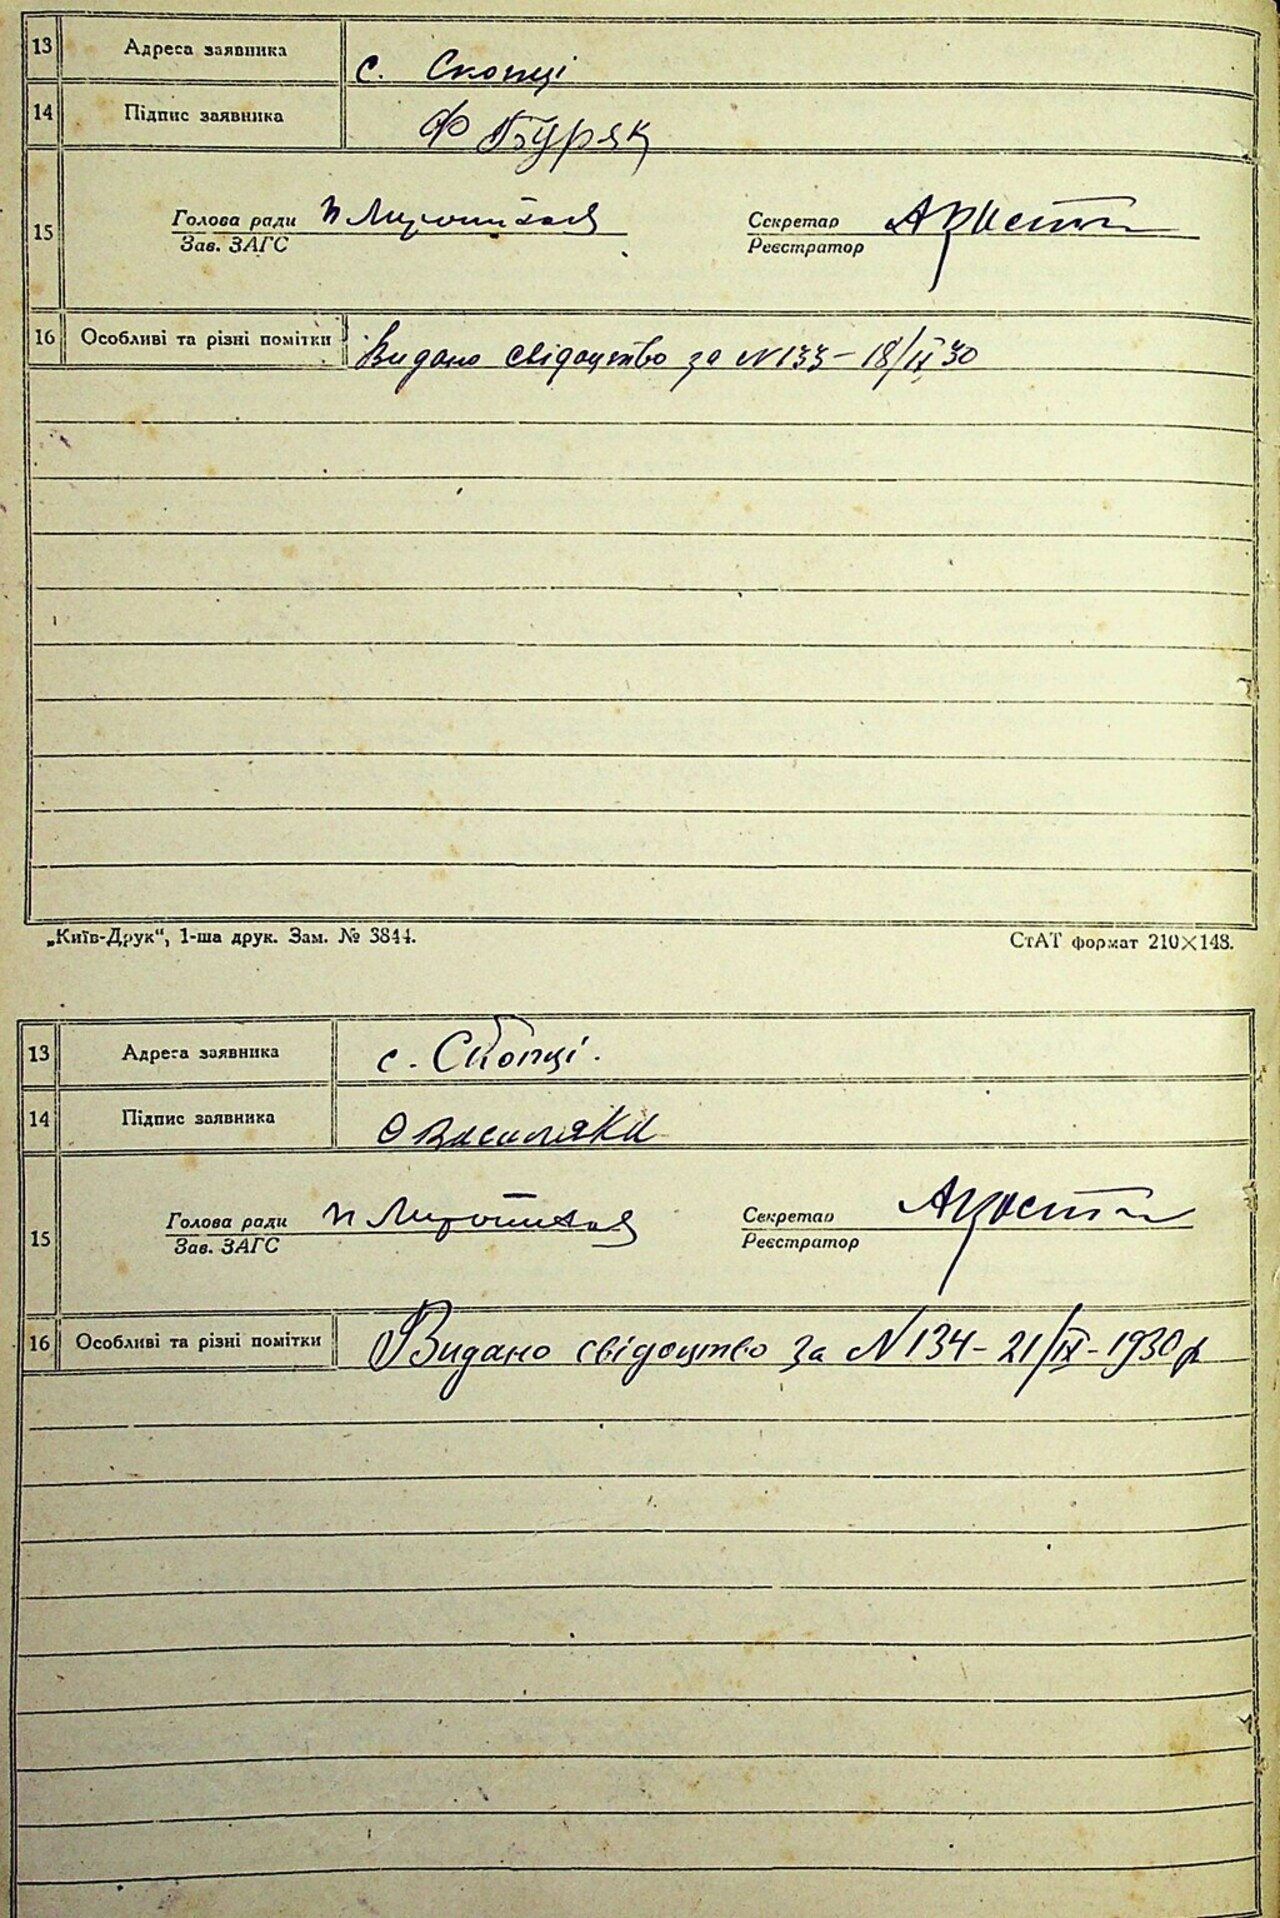 13 Адреса заявника с. Скопці
14 Підпис заявника Ф Буряк
15 Голова ради
Зав. ЗАГС
Секретар
Реєстратор
16 Особливі та різні помітки Видано свідоцтво за N 133 – 18/IX 30
„Київ-Друк“, 1-ша друк. Зам. № 3844.
СтАТ формат 210×148.
13 Адреса заявника с. Скопці.
14 Підпис заявника
15 Голова ради
Зав. ЗАГС
Секретар
Реєстратор
16 Особливі та різні помітки Видано свідоцтво за N 134 – 21/IX – 1930 р